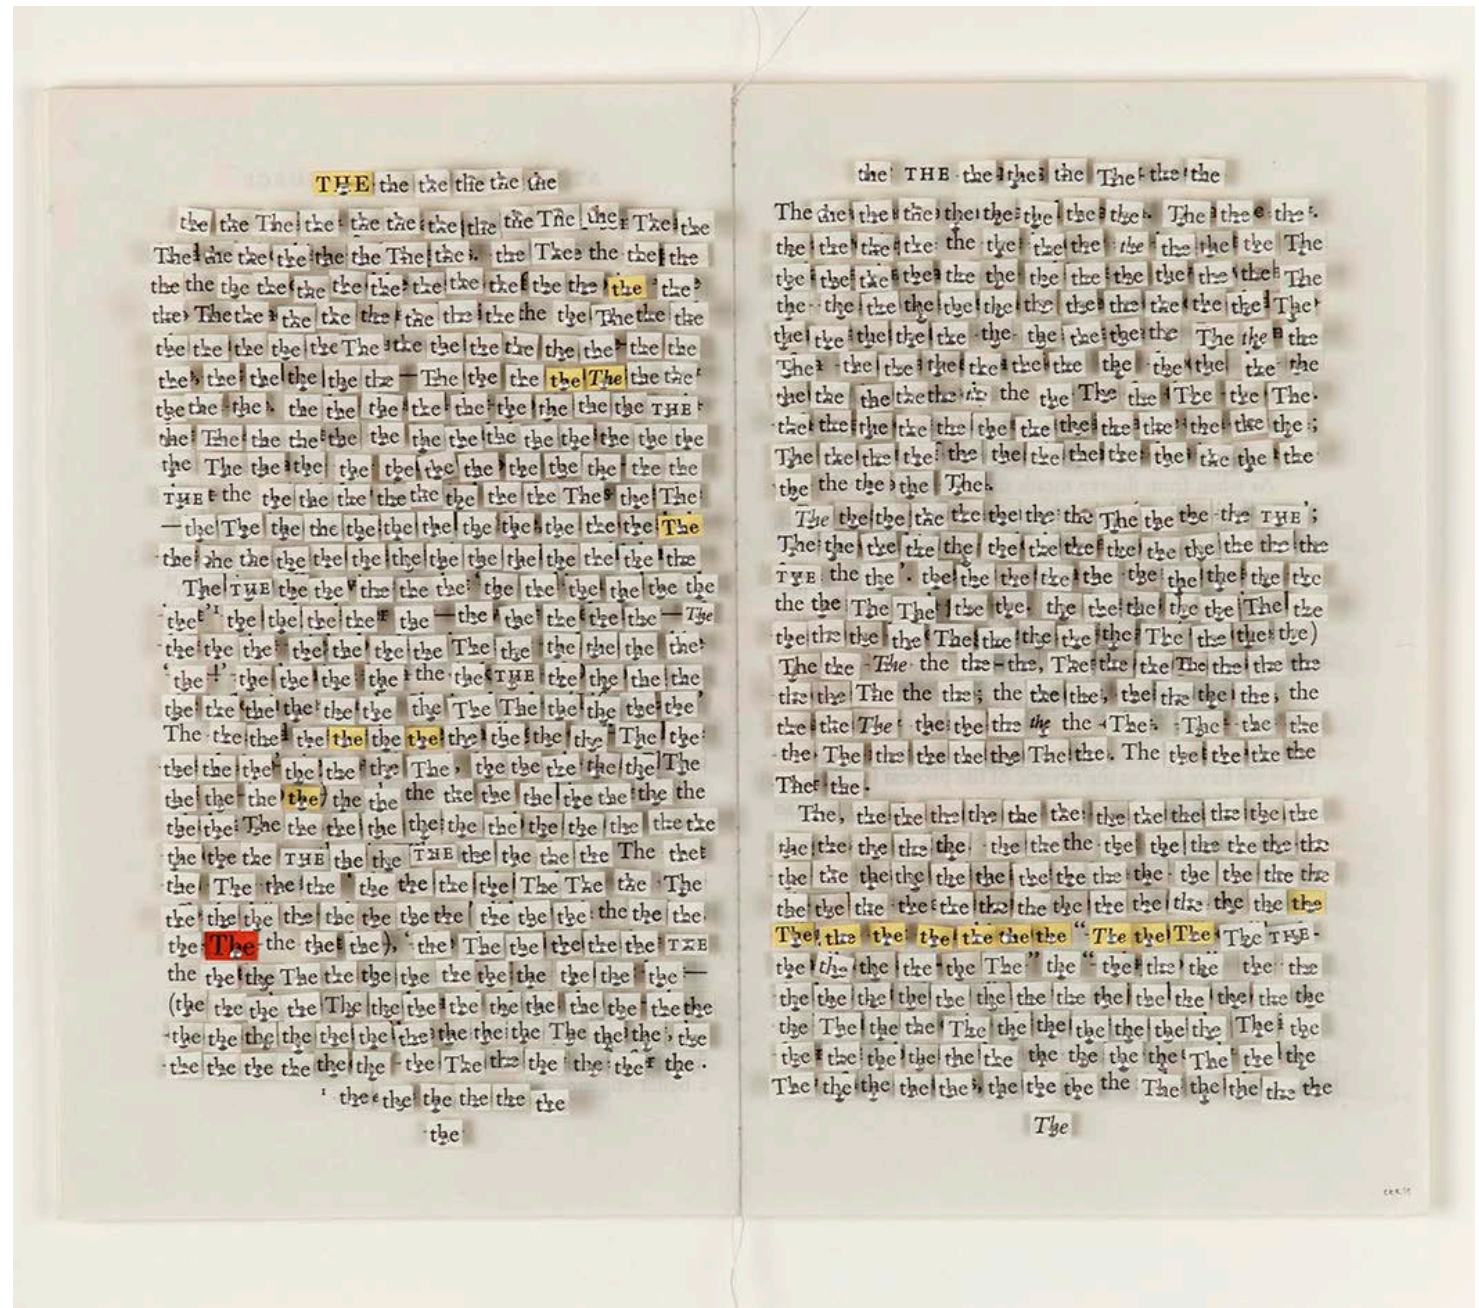 THE the the the the the
the the The the the the the the the The the The the
The the the the the the The the the The the the the
the the the the the the the the the the the the the the
the The the the the the the the the the The the the
the the the the the The the the the the the the the the
the the the the the the — The the the the The the the
the the the the the the the the the the the the THE
the The the the the the the the the the the the the the
the The the the the the the the the the the the the
THE the the the the the the the the the The the The
— the The the the the the the the the the the the The
the the the the the the the the the the the the the
The THE the the the the the the the the the the the
the the the the the the — the the the the the — The
the the the the the the the The the the the the the
the the the the the the the THE the the the the
the the the the the the the The The the the the the
The the the the the the the the the the the The the
the the the the the the The, the the the the the The
the the the the) the the the the the the the the the the
the the The the the the the the the the the the the the
the the the THE the the THE the the the the The the
the The the the the the the the The The the The
the the the the the the the the the the the the the
the The the the the), the The the the the the THE
the the the The the the the the the the the the the —
(the the the the The the the the the the the the the the
the the the the the the the the the The the the, the
the the the the the the the The the the the the the.
the the the the the the
the
the THE the the the The the the
The the the the the the the the the The the the
the the the the the the the the the the the the The
the the the the the the the the the the the the The
the the the the the the the the the the the the The
the the the the the the the the the The the the
The the the the the the the the the the the the
the the the the the the the The the The the The
the the the the the the the the the the the the;
The the the the the the the the the the the the the
the the the the The
The the the the the the the The the the the THE;
The the the the the the the the the the the the the the
THE the the. the the the the the the the the the the
the the The The the the, the the the the the The the
the the the the The the the the the The the the the)
The the The the the-the, The the the The the the the
the the The the the; the the the, the the the the, the
the the The the the the the the The The the the
the The the the the the The the. The the the the the
The the.
The, the the the the the the the the the the the the
the the the the the the the the the the the the the
the the the the the the the the the the the the the
the the the the the the the the the the the the the
The the the the the the the "The the The The THE
the the the the the The" the "the the the the the
the the the the the the the the the the the the the
the The the the The the the the the the the The the
the the the the the the the the the the The the the
The the the the the the, the the the the The the the the the
The